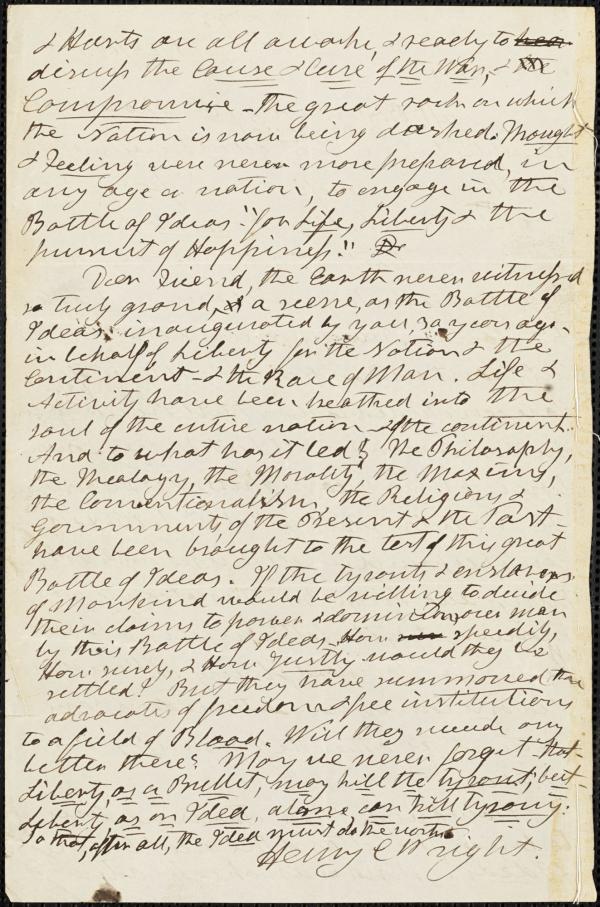 & Hearts are all awake, & ready to hear
discuss the Cause & Cure of the War, & the
Compromise – the great rock on which
the Nation is now being dashed. Thought
& Feeling were never more prepared, in
any age or nation, to engage in the
Battle of Ideas "for Life, Liberty & the
pursuit of Happiness."
Dear Friend, the Earth never witnessed
so truly grand, a scene, as the Battle of
Ideas inaugurated by you, 30 years ago –
in behalf of Liberty for the Nation & the
Continent – & the Race of Man. Life &
Activity have been breathed into the
soul of the entire nation – & the continent.
And to what has it led? The Philosophy,
the Theology, the Morality, the Maxims,
the Conventionalism, the Religions &
Governments of the Present & the Past –
have been brought to the test of this great
Battle of Ideas. If the tyrants & enslavers
of Mankind would be willing to decide
their claims to power & dominion over man
by this Battle of Ideas – How speedily,
How surely, & How Justly would they be
settled! But they have summoned the
advocates of freedom & free institutions
to a field of Blood. Will they succeed any
better there? May we never forget that
Liberty, as a Bullet, may kill the tyrant; but
Liberty, as an Idea, alone can kill tyranny.
So that, after all, the Idea must do the work.
Henry C Wright.